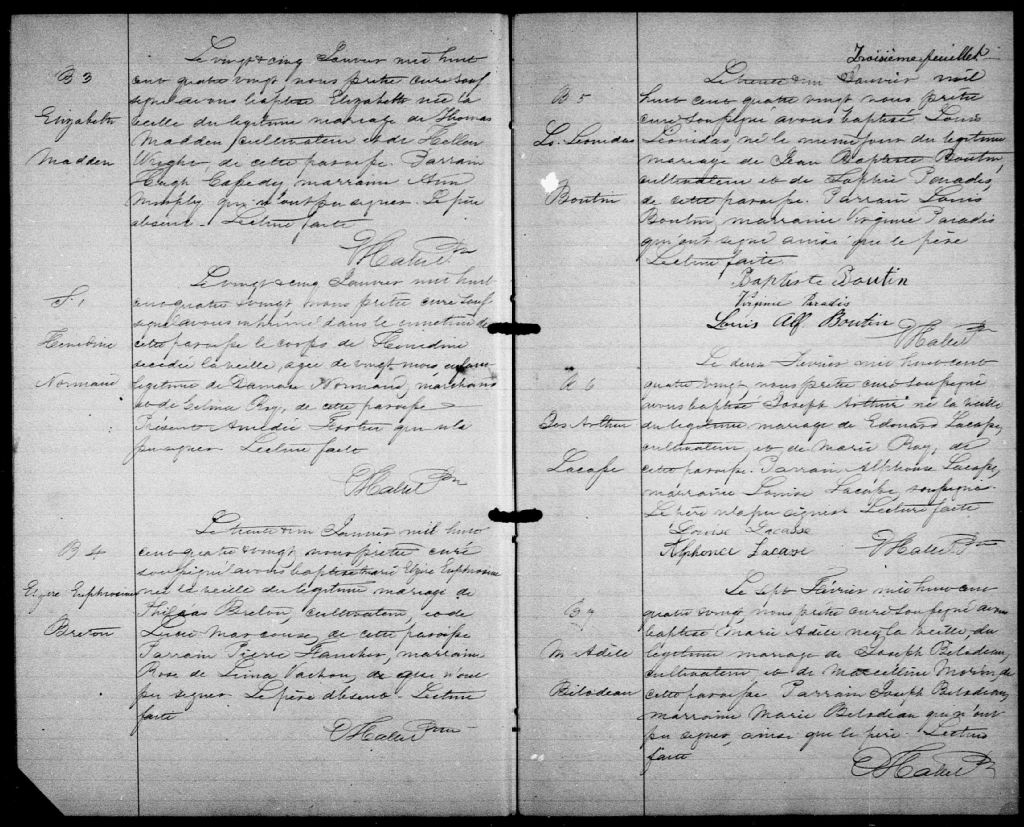 B 3
Elizabeth
Madden
Le vingt & cinq Janvier mil huit
cent quatre vingt, nous prêtre curé sous
signé avons baptisé Elizabeth née la
veille du légitime mariage de Thomas
Madden, cultivateur et de Hellen
Wright, de cette paroisse. Parrain
Hugh Cassedy, marraine Ann
Murphy qui n'ont pu signer. Le père
absent. Lecture faite
S. 1
Henedine
Normand
Le vingt & cinq Janvier mil huit
cent quatre & vingt nous prêtre curé sous
signé avons inhumé dans le cimetière de
cette paroisse le corps de Henedine
décédée la veille, agée de vingt mois enfant
légitime de Damase Normand, marchand
et de Celina Roy, de cette paroisse
Présent Amédée qui n'a
pu signer. Lecture faite
B 4
Elzire Euphrosine
Breton
Le trente & un Janvier mil huit
cent quatre & vingt nous prêtre curé
soussigné avons baptisé Marie Elzire Euphrosine
née la veille du légitime mariage de
Breton, cultivateur, et de
Luce Marcoux, de cette paroisse
Parrain Pierre marraine
Rose de Lima Vachon, qui n'ont
pu signer. Le père absent. Lecture
faite
Troisième feuillet
B 5
Ls. Leonidas
Boutin
Le trente & un Janvier mil
huit cent quatre vingt nous prêtre
curé soussigné avons baptisé Louis
Leonidas, né le même jour du légitime
mariage de Jean Baptiste Boutin,
cultivateur et de Sophie Paradis,
de cette paroisse. Parrain Louis
Boutin, marraine Virginie Paradis
qui ont signé ainsi que le père
Lecture faite.
Baptiste Boutin
Virginie Paradis
Louis Alf Boutin
B 6
Jos Arthur
Lacasse
Le deux Février mil huit cent
quatre vingt, nous prêtre curé soussigné
avons baptisé Joseph Arthur né la veille
du légitime mariage de Edouard Lacasse,
cultivateur et de Marie Roy, de
cette paroisse. Parrain Alphonse Lacasse,
marraine Louise Lacasse, soussignés.
Le père n'a pu signer Lecture faite
Louise Lacasse
Alphonce Lacase
B 7
M Adèle
Bilodeau
Le sept Février mil huit cent
quatre vingt, nous prêtre curé soussigné avons
baptisé Marie Adèle née la veille du
légitime mariage de Joseph Bilodeau,
cultivateur, et de Marcelline Morin, de
cette paroisse Parrain Joseph Bilodeau,
marraine Marie Bilodeau qui n'ont
pu signer, ainsi que le père. Lecture
faite